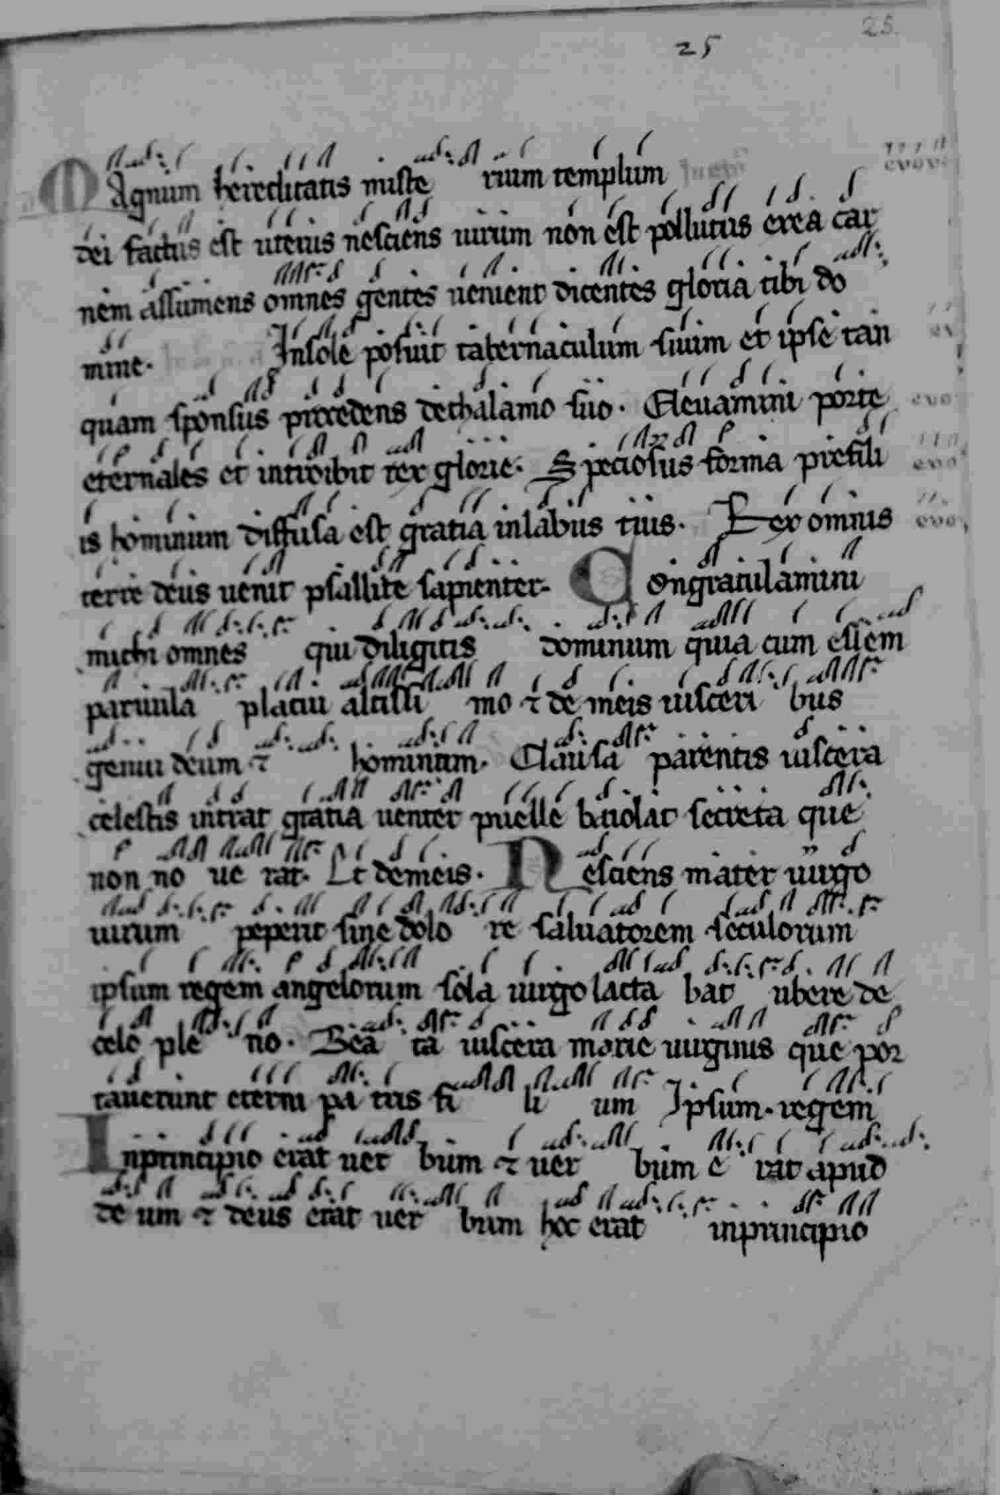 25.
25
Magnum hereditatis miste rium templum
evove
dei factus est uterus nesciens uirum non est pollutus ex ea car
nem assumens omnes gentes uenient dicentes gloria tibi do
mine. In sole posuit tabernaculum suum et ipse tan
quam sponsus procedens de thalamo suo. Eleuamini porte
evo
eternales et introibit rex glorie. Speciosus forma pre fili
evo
is hominum diffusa est gratia in labiis tuis. Rex omnis
evo
terre deus uenit psallite sapienter. Congratulamini
michi omnes qui diligitis dominum quia cum essem
paruula placui altissi mo ⁊ de meis uisceri bus
genui deum ⁊ hominem. Clausa parentis uiscera
celestis intrat gratia uenter puelle baiolat secreta que
non no ue rat. Et de meis. Nesciens mater uirgo
uirum peperit sine dolo re saluatorem seculorum
ipsum regem angelorum sola uirgo lacta bat ubere de
celo ple no. Bea ta uiscera marie uirginis que por
tauerunt eterni pa tris fi li um Ipsum. regem
In principio erat uer bum ⁊ uer bum e rat apud
de um ⁊ deus erat uer bum hoc erat in principio